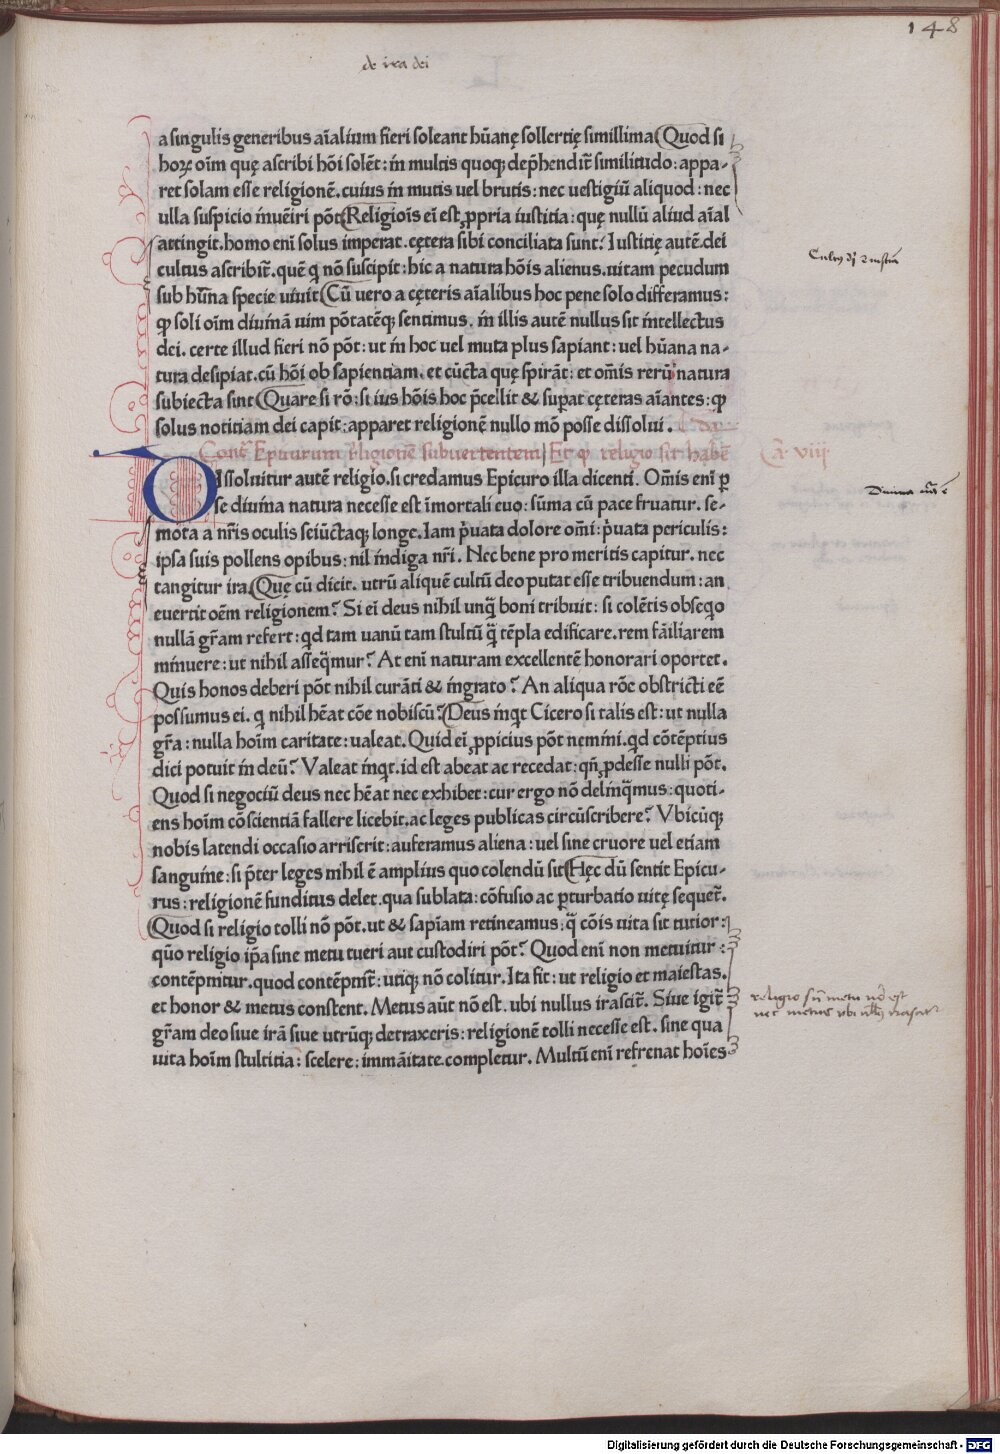 148
de ira dei
a singulis generibus aīalium fieri soleant hūanę sollertię simillima Quod si
hoꝝ oīm quę ascribi hōi solēt: in multis quoqꝫ dep̄hendit̄ similitudo: appa-
ret solam esse religionē. cuius in mutis uel brutis: nec uestigiū aliquod: nec
ulla suspicio inuēiri pōt Religiois̄ ei̅ est ꝓpria iustitia: quę nullū aliud aīal
attingit. homo eni̅ solus imperat. cętera sibi conciliata sunt? Iustitię autē. dei
cultus ascribit̄. quē q nō suscipit: hic a natura hōis alienus. uitam pecudum
sub hūna specie uiuit Cū uero a cęteris aīalibus hoc pene solo differamus:
ꝙ soli oīm diuinā uim pōtatēqꝫ sentimus. in illis autē nullus sit intellectus
dei. certe illud fieri nō pōt: ut in hoc uel muta plus sapiant: uel hūana na-
tura desipiat. cū hōi ob sapientiam. et cūcta quę spirāt: et om̄is rerū natura
subiecta sint Quare si rō: si ius hōis hoc p̄cellit & suꝑat cęteras aīantes: ꝙ
solus notitiam dei capit: apparet religionē nullo mō posse dissolui.
Cont̄ Epicurum religionē subuertentem Et ꝙ religio sit habē Ca viij
Dissoluitur autē religio. si credamus Epicuro illa dicenti. Om̄is eni̅ ꝑ
se diuina natura necesse est īmortali euo: sūma cū pace fruatur. se-
mota a nr̄is oculis seiūctaqꝫ longe. Iam p̀uata dolore om̄i: p̀uata periculis:
ipsa suis pollens opibus: nil indiga nr̄i. Nec bene pro meritis capitur. nec
tangitur ira Quę cū dicit. utrū aliquē cultū deo putat esse tribuendum: an
euertit oēm religionem? Si ei̅ deus nihil unq̄ boni tribuit: si colētis obseqo
nullā gr̄am refert: qd tam uanū tam stultū q̄ tēpla edificare. rem fāiliarem
minuere: ut nihil asseq̄mur? At eni̅ naturam excellentē honorari oportet.
Quis honos deberi pōt nihil curāti & ingrato? An aliqua rōe obstricti eē
possumus ei. q nihil hēat cōe nobiscū? Deus inqt Cicero si talis est: ut nulla
gr̄a: nulla hoīm caritate: ualeat. Quid ei̅ ꝓpicius pōt nemini. qd cōtēptius
dici potuit in deū? Valeat inqt. id est abeat ac recedat: qn̄ ꝓdesse nulli pōt.
Quod si negociū deus nec hēat nec exhibet: cur ergo nō delinq̄mus: quoti-
ens hoīm cōscientiā fallere licebit. ac leges publicas circūscribere? Vbicūqꝫ
nobis latendi occasio arriserit: auferamus aliena: uel sine cruore uel etiam
sanguine: si p̄ter leges nihil ē amplius quo colendū sit Hęc dū sentit Epicu-
rus: religionē funditus delet. qua sublata: cōfusio ac ꝑturbatio uitę sequet̄.
Quod si religio tolli nō pōt. ut & sapīam retineamus: q̄ cōis uita sit tutior:
quō religio ip̄a sine metu tueri aut custodiri pōt? Quod eni̅ non metuitur:
contēpnitur. quod contēpnit̄: utiqꝫ nō colitur. Ita fit: ut religio et maiestas.
et honor & metus constent. Metus aūt nō est. ubi nullus irascit̄. Siue igit̄
gr̄am deo siue irā siue utrūqꝫ detraxeris: religionē tolli necesse est. sine qua
uita hoīm stultitia: scelere: immāitate completur. Multū eni̅ refrenat hoīes
religio sn̄ metu nō est
nec metus vbi null9 irascit̄
Digitalisierung gefördert durch die Deutsche Forschungsgemeinschaft - DFG